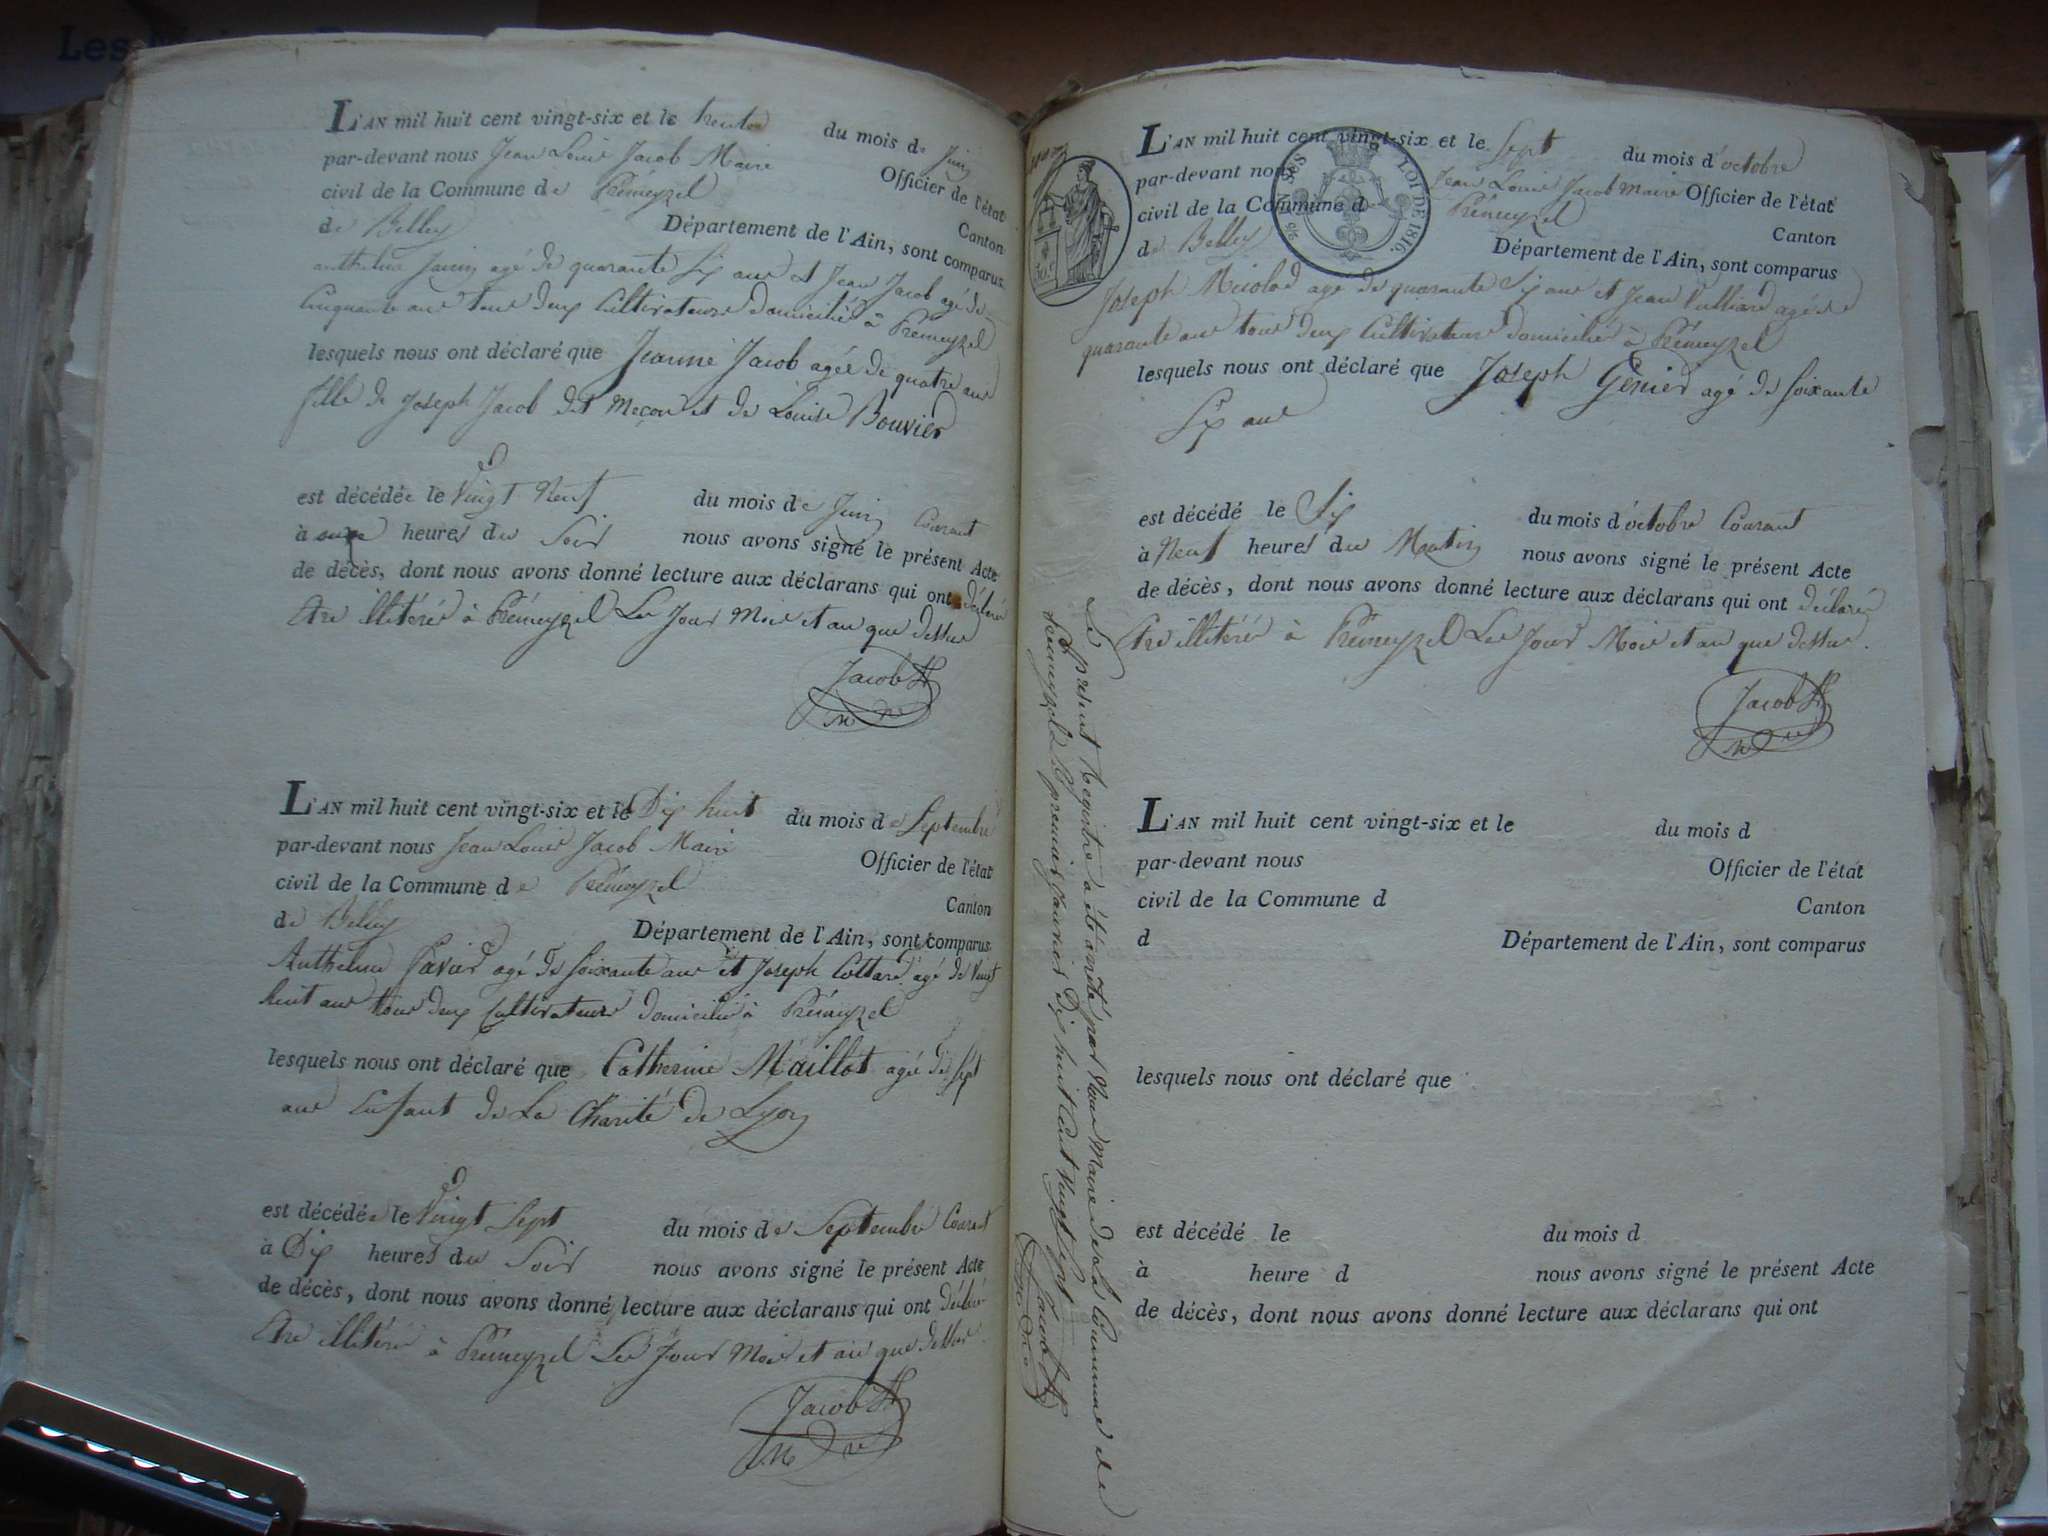 L'AN mil huit cent vingt-six et le trente du mois de Juin
par-devant nous Jean Louis Jacob Maire Officier de l'état
civil de la Commune de Prémeyzel Canton
de Belley Département de l'Ain, sont comparus
anthelme Janin agé de quarante Six ans et Jean Jacob agé de
Cinquante ans tous deux Cultivateurs domicilié à Prémeyzel
lesquels nous ont déclaré que Jeanne Jacob agée de quatre ans
fille de Joseph Jacob dit Meçon et de Louise Bouvier
est décédée le Vingt Neuf du mois de Juin Courant
à onze heures du Soir nous avons signé le présent Acte
de décès, dont nous avons donné lecture aux déclarans qui ont déclaré
Etre illitéré à Prémeyzel Les Jour Mois et an que dessus
Jacob
L'AN mil huit cent vingt-six et le Dix huit du mois de Septembre
par-devant nous Jean Louis Jacob Maire Officier de l'état
civil de la Commune de Prémeyzel Canton
de Belley Département de l'Ain, sont comparus
Anthelme agé de Soixante ans et Joseph Cottard agé de Vingt
huit ans tous deux Cultivateurs domicilié à Prémeyzel
lesquels nous ont déclaré que Catherine Maillot agée de Sept
ans Enfant de La Charité de Lyon
est décédée le Vingt Sept du mois de Septembre Courant
à Dix heures du Soir nous avons signé le présent Acte
de décès, dont nous avons donné lecture aux déclarans qui ont déclaré
Etre illitéré à Prémeyzel Les Jour Mois et an que dessus
Jacob
L'AN mil huit cent vingt-six et le Sept du mois d'octobre
par-devant nous Jean Louis Jacob Maire Officier de l'état
civil de la Commune d Prémeyzel Canton
de Belley Département de l'Ain, sont comparus
LOI DE 1816.
Joseph agé de quarante Six ans et Jean Vulliard agé de
quarante ans tous deux Cultivateurs domicilié à Prémeyzel
lesquels nous ont déclaré que Joseph Génier agé de Soixante
Six ans
est décédé le Six du mois d'octobre Courant
à Neuf heures du Matin nous avons signé le présent Acte
de décès, dont nous avons donné lecture aux déclarans qui ont déclaré
Etre illitéré à Prémeyzel Les Jour Mois et an que dessus.
Jacob
Le présent Registre a été arrêté par Nous Maire de la Commune de
Prémeyzel Le premier Janvier Dix huit Cent Vingt Sept
Jacob
L'AN mil huit cent vingt-six et le du mois d
par-devant nous Officier de l'état
civil de la Commune d Canton
d Département de l'Ain, sont comparus
lesquels nous ont déclaré que
est décédé le du mois d
à heure d nous avons signé le présent Acte
de décès, dont nous avons donné lecture aux déclarans qui ont